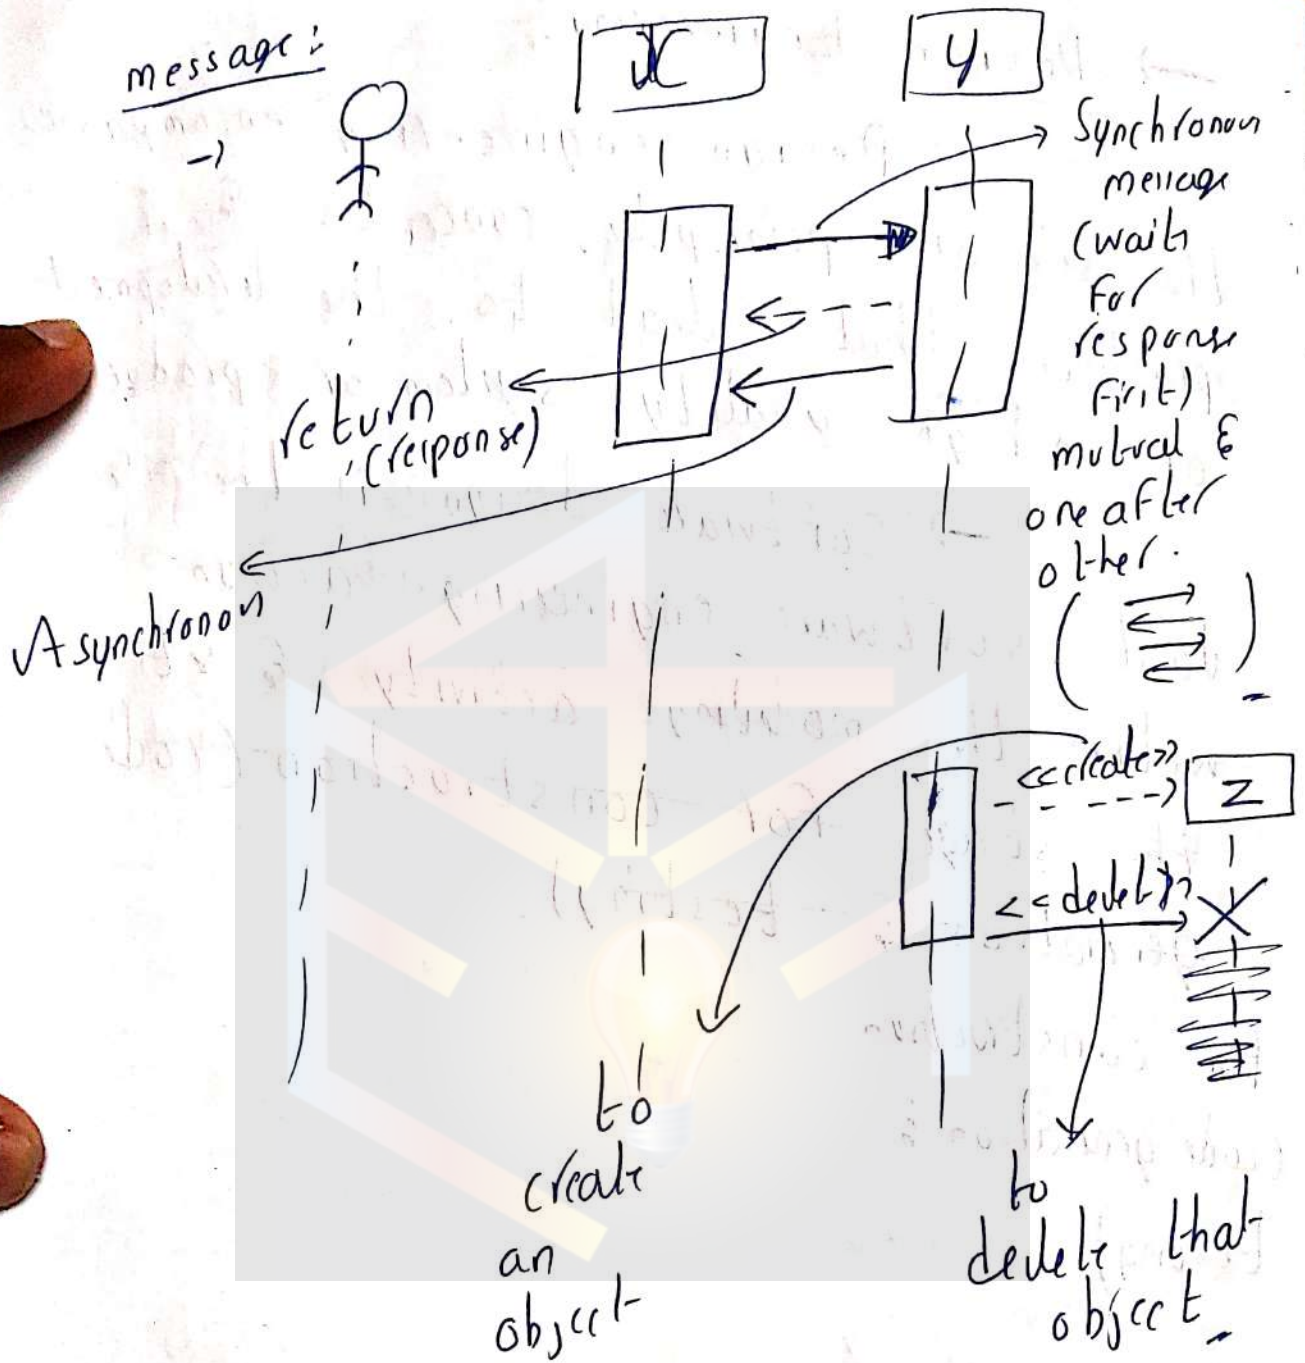 message :
→
x
y
Synchronous
message
(waits
for
response
first)
mutual &
one after
other.
return
(response)
Asynchronous
<<create>>
z
<<delete>>
to
create
an
object
to
delete that
object